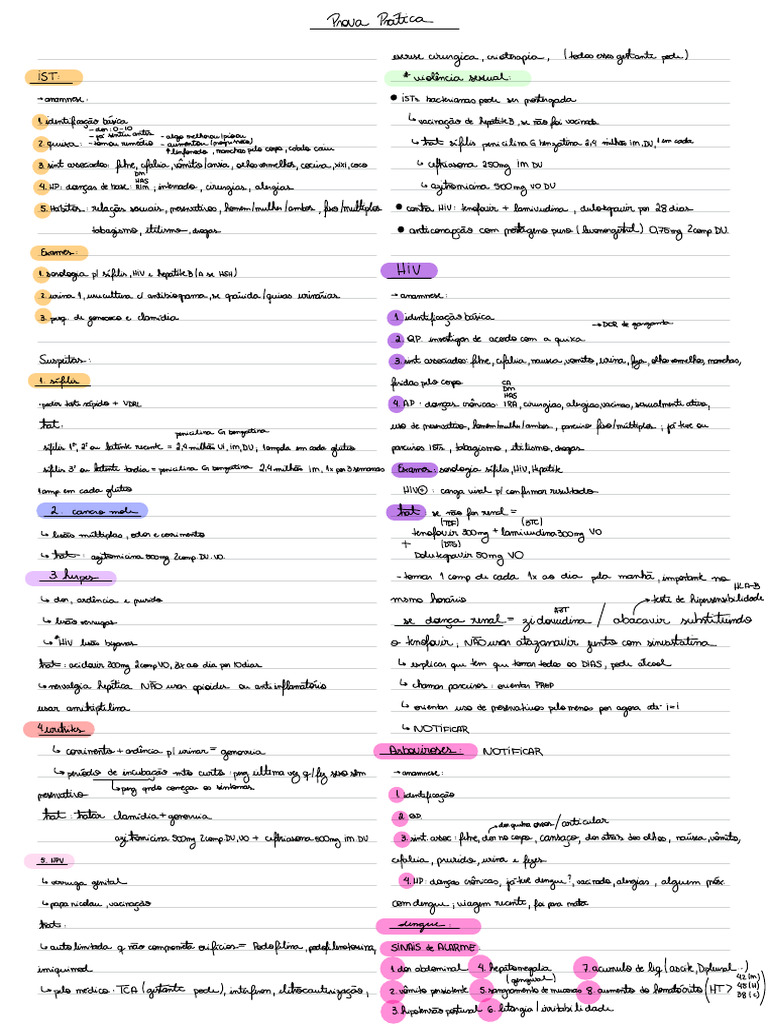 Prova Prática
IST:
→ anamnese:
1. identificação básica
- dor: 0-10
- já sentiu antes - algo melhorou/piorou
2. queixa: - tomou remédio - aumentou (progressão)
↑ linfonodo, manchas pelo corpo, cabelo caiu
3. sint associados: febre, cefalia, vômito/ansia, olhos vermelhos, coceira, xixi, coco
DM
HAS
4. HP: doenças de base: RIM, internado, cirurgias, alergias
5. Habitos: relações sexuais, preservativos, homem/mulher/ambos, fixo/multiplos
tabagismo, etilismo, drogas
Exames:
1. sorologia p/ sífilis, HIV e hepatite B (A se HSH)
2. urina 1, urucultura c/ antibiograma, se
/queixas urinárias
3. pesq. de gonococo e clamídia
Suspeitas:
1. sífilis
.pedir teste rápido + VDRL
trat:
penicilina G benzatina
sífilis 1º, 2º ou latente recente = 2,4 milhões UI, IM, DU, 1 ampola em cada glúteo
sífilis 3º ou latente tardia = penicilina G benzatina 2,4 milhões IM, 1x por 3 semanas
1 amp em cada glúteo
2. cancro mole
↳ lesão múltiplas, odor e corrimento
↳ trat: azitromicina 500mg 2comp. DU. VO.
3 herpes
↳ dor, ardência e prurido
↳ lesão verrugas
↳ *HIV lesão bizarras
trat: aciclovir 200mg 2comp VO, 3x ao dia por 10 dias
↳ nervalgia hepética NÃO usar opioides ou anti inflamatório
usar amitriptilina
4 uretrites
↳ corrimento + ardência p/ urinar = gonorreia
↳ período de incubação mto curto: perg ultima vez q/ fez sexo sem
preservativo ↳ perg qndo começou os sintomas
trat: tratar clamídia + gonorreia
azitromicina 500mg 2comp. DU, VO + ceftriaxona 500mg IM. DU
5. HPV
↳ verruga genital
↳ papanicolau, vacinação
trat:
↳ auto limitada q não compromete orifícios = Podofilina, podofilotoxina,
imiquimod
↳ pelo médico: TCA (gestante pode), interferon, eletrocauterização,
exerese cirurgica, crioterapia, (todos esses gestante pode)
* violência sexual:
• ISTs bacterianas pode ser postergada
↳ vacinação de hepatite B, se não foi vacinado
↳ trat sífilis penicilina G benzatina 2,4 milhões IM, DU, 1 em cada
↳ ceftriaxona 250mg IM DU
↳ azitromicina 500mg VO DU
• contra HIV: tenofovir + lamivudina, dulotegravir por 28 dias
• anticoncepção com progestageno puro (levonorgestrel) 0,75mg 2 comp DU.
HIV
→ anamnese:
1 identificação básica
→ DOR de garganta
2. QP. investigar de acordo com a queixa
3. sint associados: febre, cefalia, nausea, vomito, urina, fezes, olhos vermelhos, manchas,
feridas pelo corpo
CA
DM
HAS
4. AP: doenças crônicas: IRA, cirurgias, alergias, vacinas, sexualmente ativo,
uso de preservativo, homem/mulher/ambos, parceiro fixo/múltiplos; já teve ou
parceiros ISTs, tabagismo, etilismo, drogas
Exames: sorologia sífilis, HIV, Hepatite
HIV⊕: carga viral p/ confirmar resultado
trat se não for renal =
(TDF) (3TC)
tenofovir 300mg + lamivudina 300mg VO
+ (DTG)
Dolutegravir 50mg VO
- tomar 1 comp de cada 1x ao dia pela manhã, importante no
mesmo horário
HLA-B
→ teste de hipersensibilidade
AZT
se doença renal = zidovudina / abacavir substituindo
o tenofovir, NÃO usar atazanavir junto com sinvastatina
↳ explicar que tem que tomar todos os DIAS, pode alcool
↳ chamar parceiros: orientar PREP
↳ orientar uso de preservativos pelo menos por agora até i=i
↳ NOTIFICAR
Arboviroses: NOTIFICAR
→ anamnese:
1 identificação
2. QP.
→ dor quebra ossos / articular
3. sint. assoc: febre, dor no corpo, cansaço, dor atrás dos olhos, naúsea, vômito,
cefalia, prurido, urina e fezes
4. HP: doenças crônicas, já teve dengue?, vacinado, alergias, alguem próx
com dengue; viagem recente, foi para mata
dengue:
SINAIS de ALARME:
1. dor abdominal 4. hepatomegalia 7. acumulo de liq (ascite, D.pleural..)
(gengival) 42 (m)
2. vômito persistente 5. sangramento de mucosas 8. aumento do hematócrito (HT > 48 (H)
38 (c)
3. hipotensão postural 6. letargia / irritabilidade